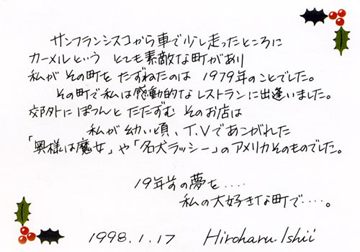 サンフランシスコから車で少し走ったところに
カーメルという とても素敵な町があり
私が その町を たずねたのは 1979年のことでした。
その町で私は感動的なレストランに出逢いました。
郊外に ぽつんと たたずむ そのお店は
私が 幼い頃、T.Vであこがれた
「奥様は魔女」や「名犬ラッシー」のアメリカそのものでした。
19年前の夢を‥‥
私の大好きな町で‥‥。
1998.1.17 Hiroharu Ishii